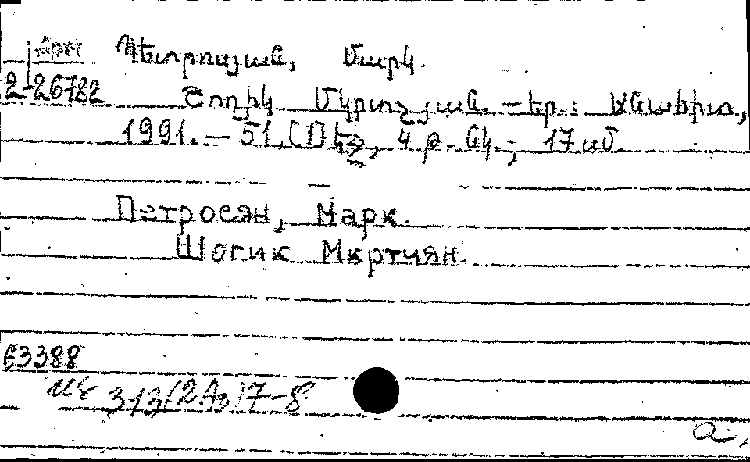 Պետրոսյան, Մարկ.
2-26782
Շողիկ Մկրտչյան. – Եր.: Անահիտ,
1991. – 51, [1] էջ, 4 թ. նկ.; 17 սմ.
Петросян, Марк.
Шогик Мкртчян.
63388
313(2Аз)7-8